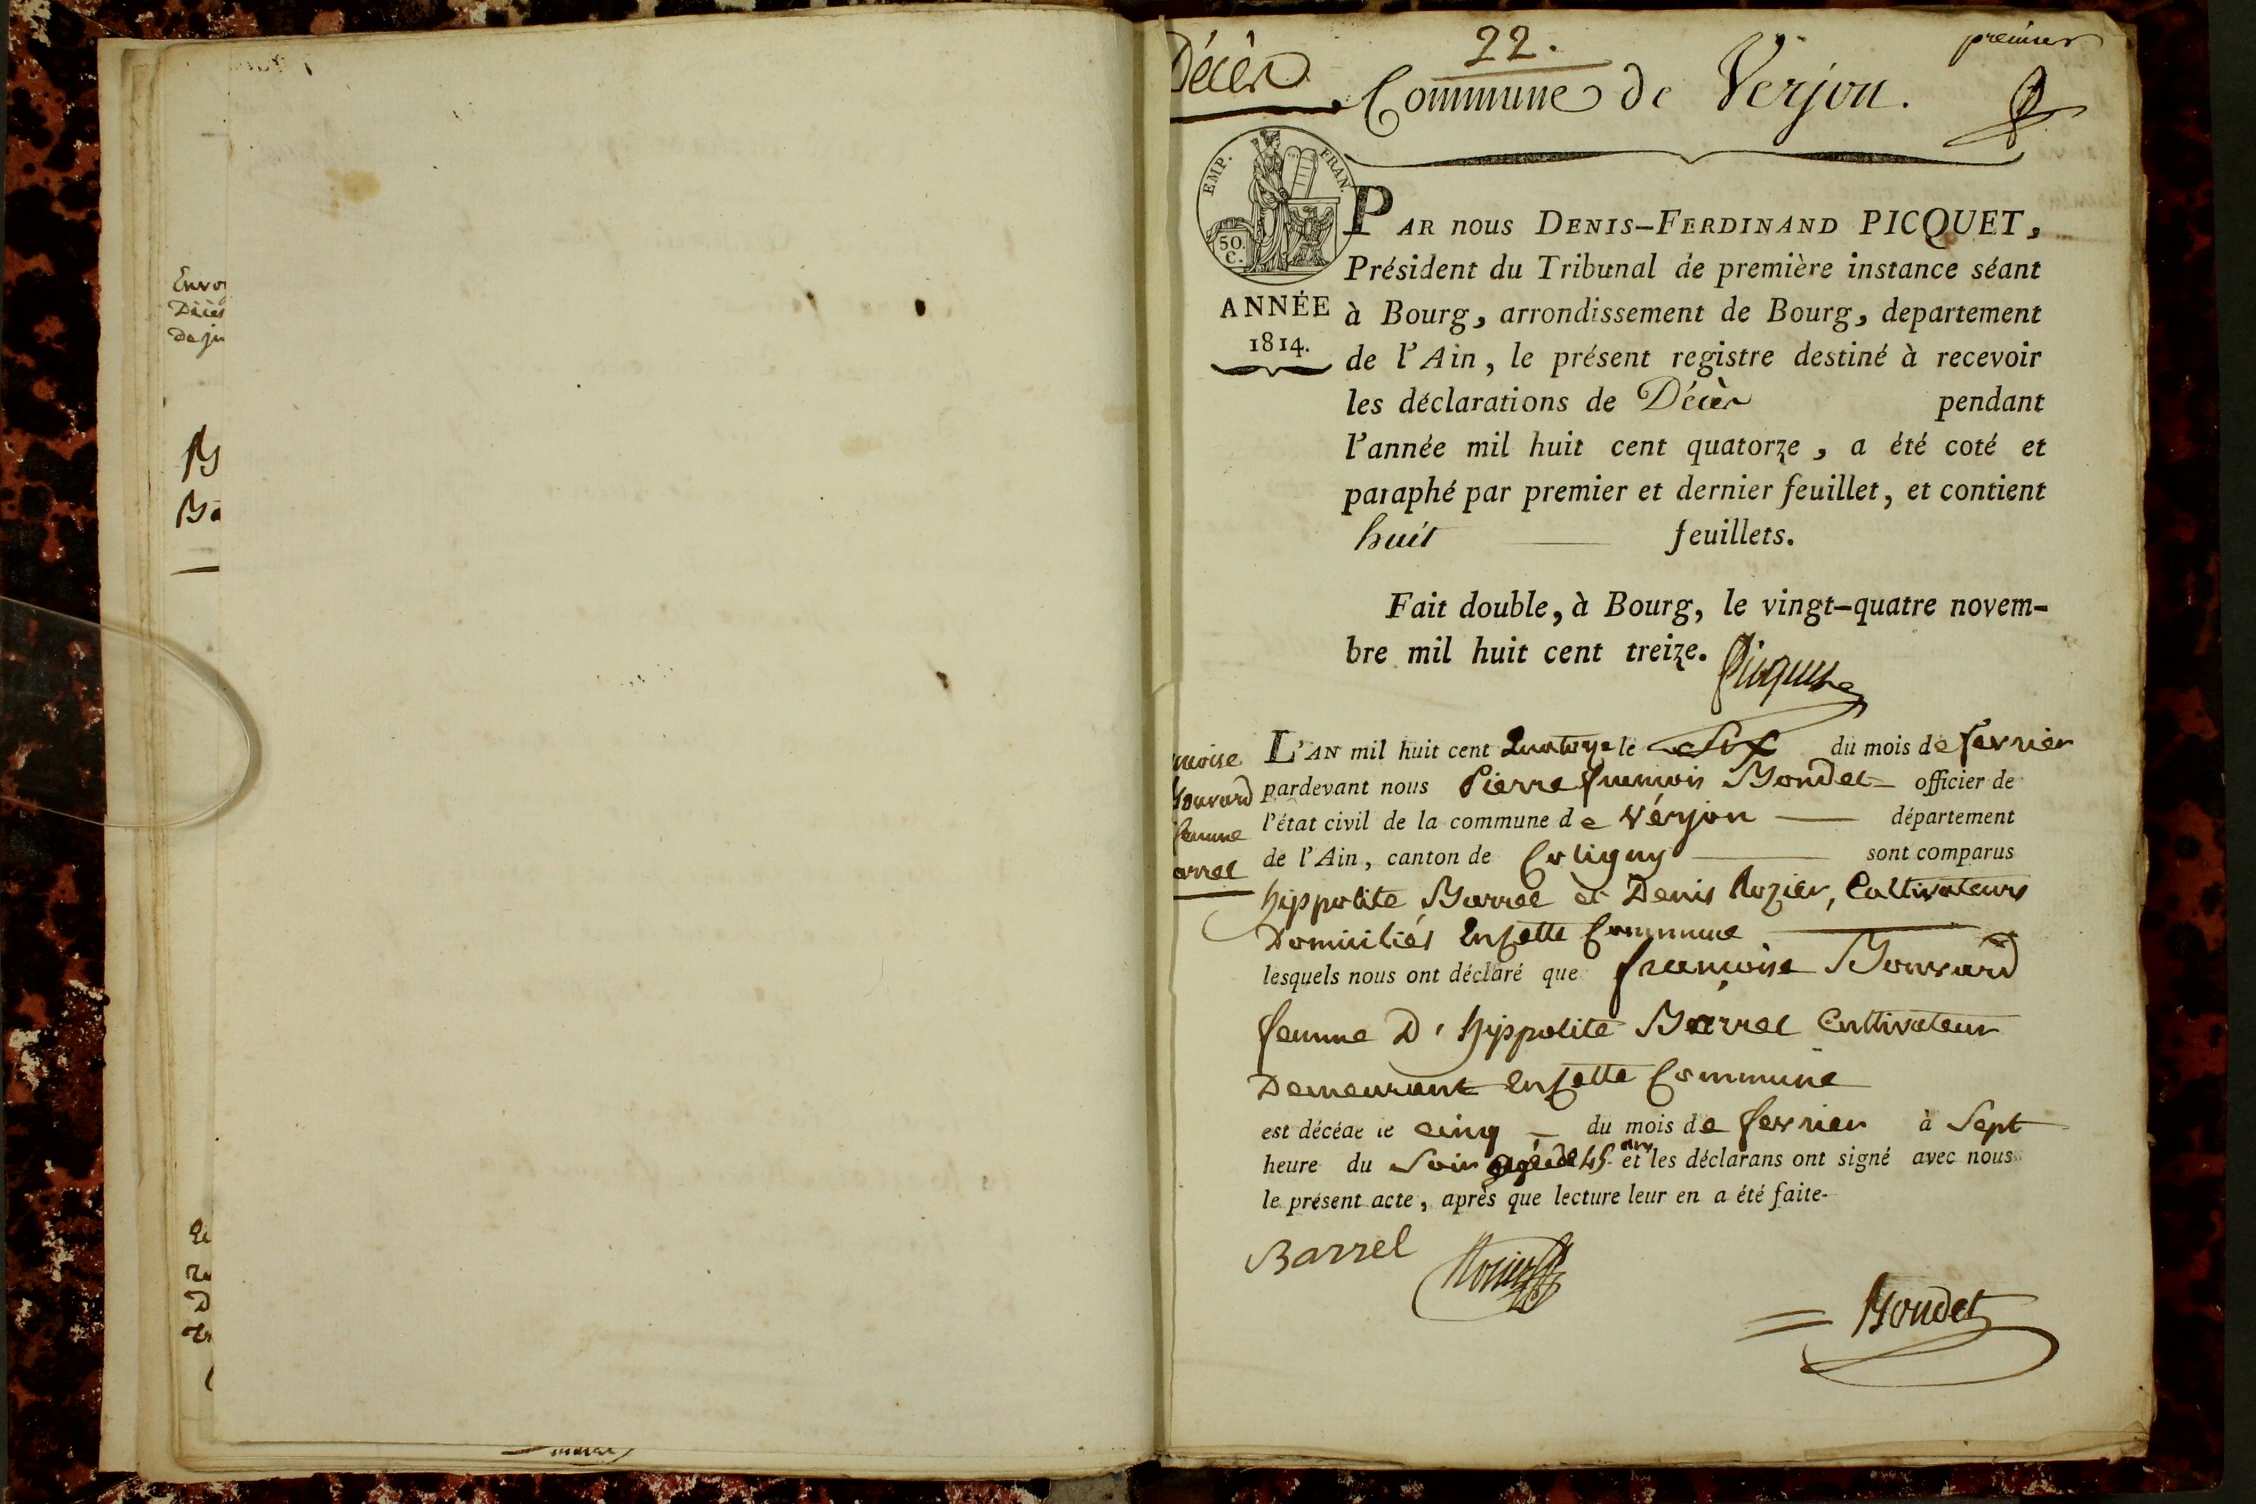 Envo
Décès
De ju
B
Ba
Décès
22.
premier
Commune de Verjon.
EMP. FRAN.
50. C.
ANNÉE
1814.
PAR nous DENIS-FERDINAND PICQUET,
Président du Tribunal de première instance séant
à Bourg, arrondissement de Bourg, departement
de l'Ain, le présent registre destiné à recevoir
les déclarations de Décès pendant
l'année mil huit cent quatorze, a été coté et
paraphé par premier et dernier feuillet, et contient
huit feuillets.
Fait double, à Bourg, le vingt-quatre novem-
bre mil huit cent treize.
Picquet
L'AN mil huit cent Quatorze le Six du mois de fevrier
pardevant nous Pierre françois Bondet officier de
l'état civil de la commune de Verjon département
de l'Ain, canton de Coligny sont comparus
hippolite Barrel et Denis Rozier, Cultivateurs
Domiciliés En Cette Commune
lesquels nous ont déclaré que françoise Bouvard
femme D'hippolite Barrel Cultivateur
Demeurant En Cette Commune
est décédé le cinq du mois de fevrier à Sept
heure du Soir agée de 45 ans et les déclarans ont signé avec nous
le présent acte, après que lecture leur en a été faite.
nçoise
Bouvard
femme
arrel
Barrel
Rozier
Bondet